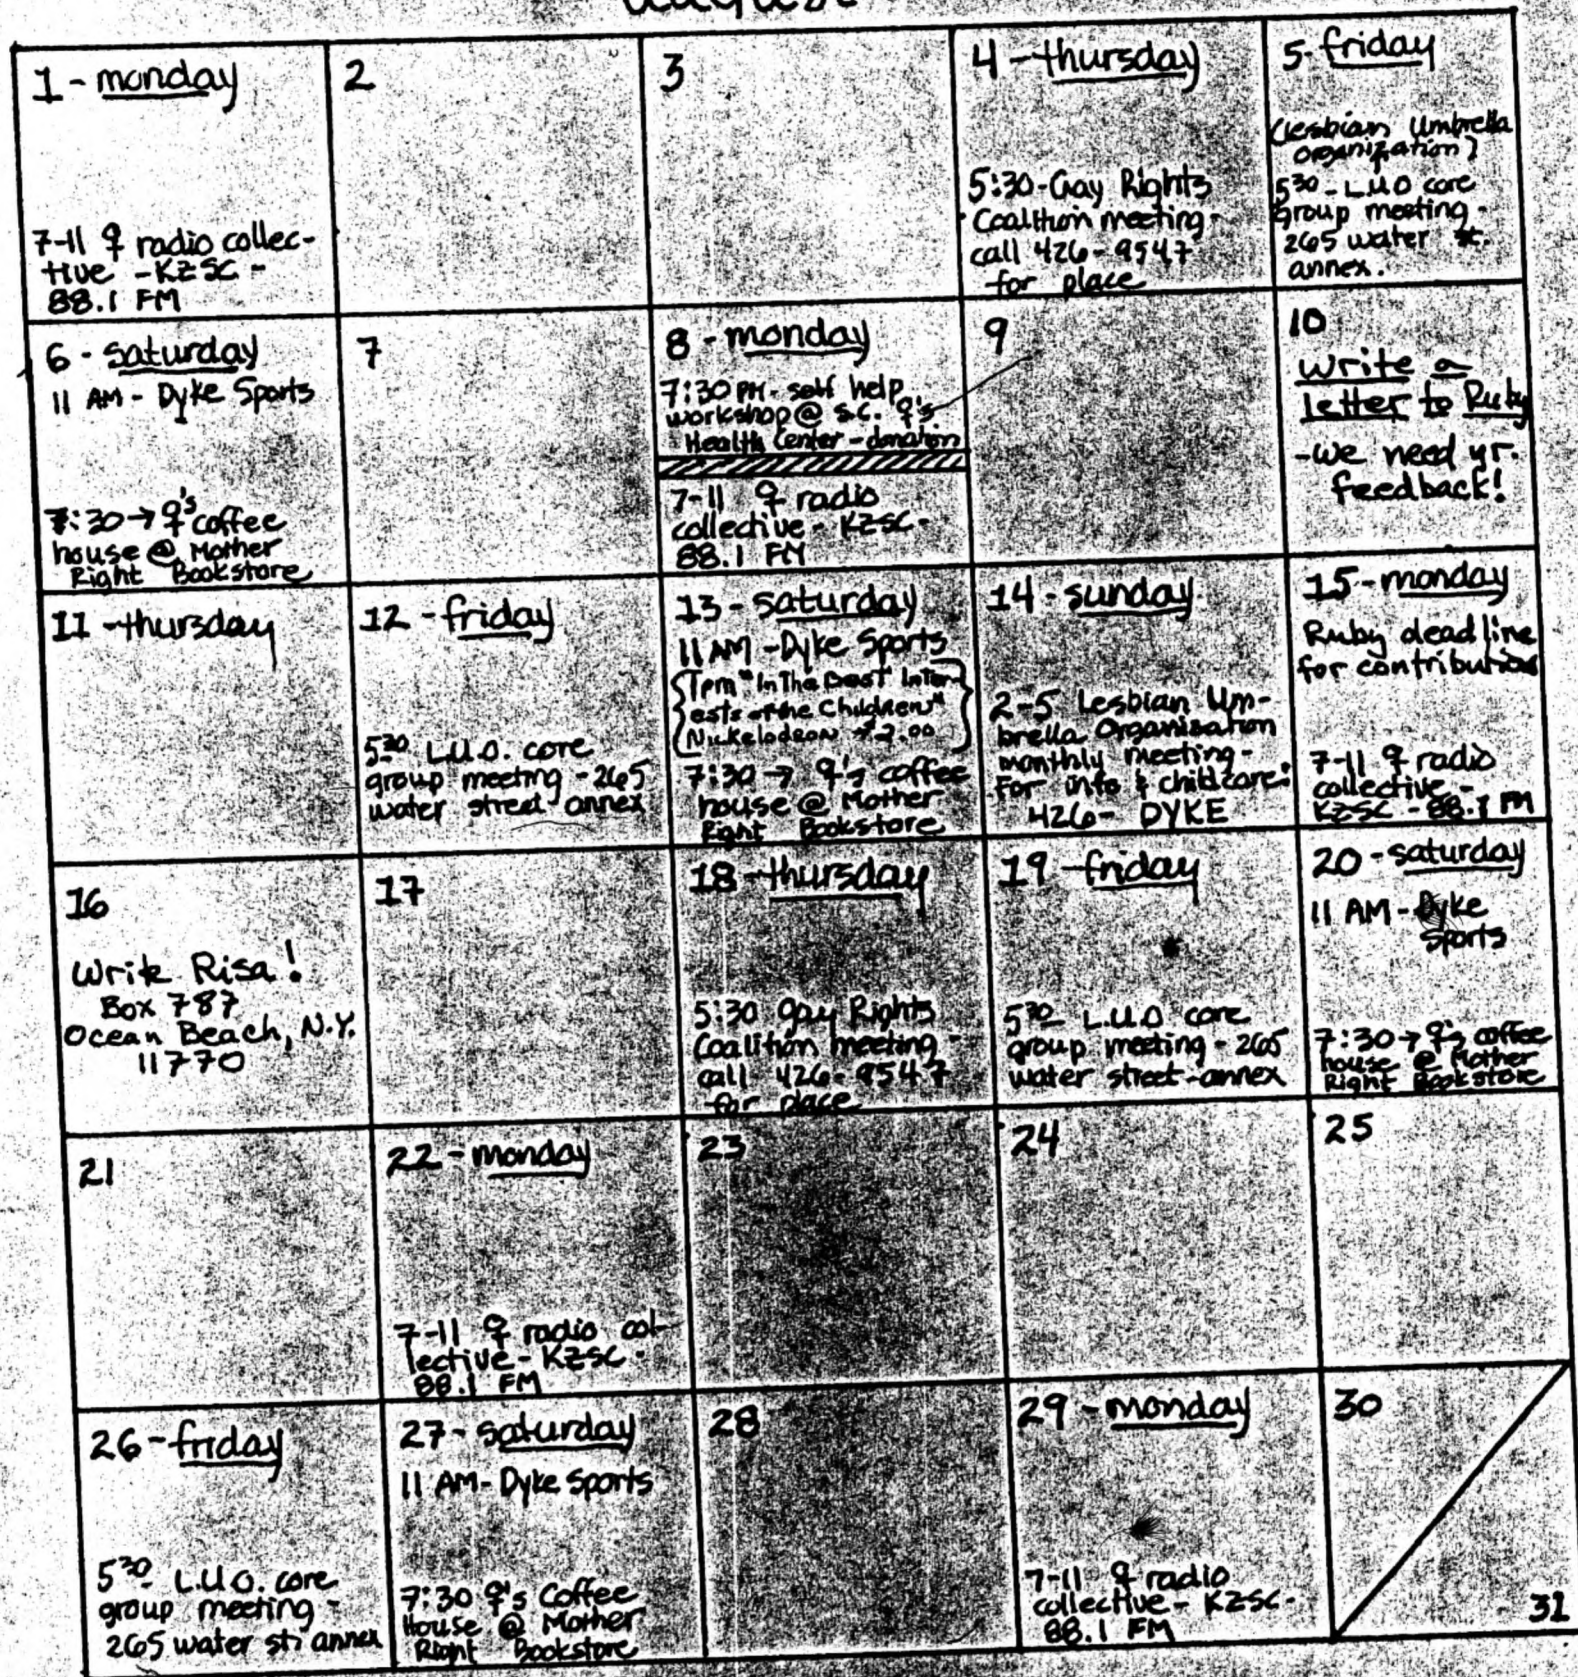 1 - monday
7-11 ♀ radio collec-
tive - KZSC -
88.1 FM
2
3
4 - thursday
5:30 - Gay Rights
Coalition meeting -
call 426-9547
for place
5 - friday
(Lesbian Umbrella
organization)
5³⁰ - L.U.O core
group meeting -
265 water st.
annex.
6 - saturday
11 AM - Dyke Sports
7:30 → ♀'s coffee
house @ Mother
Right Bookstore
7
8 - monday
7:30 PM - self help
workshop @ S.C. ♀'s
Health Center - donation
7-11 ♀ radio
collective - KZSC -
88.1 FM
9
10
Write a
letter to Ruby
- we need yr.
feedback!
11 - thursday
12 - friday
5³⁰ L.U.O. core
group meeting - 265
water street annex
13 - saturday
11 AM - Dyke Sports
7pm "In The Best Inter-
ests of the Children"
Nickelodeon $2.00
7:30 → ♀'s coffee
house @ Mother
Right Bookstore
14 - sunday
2-5 Lesbian Um-
brella Organization
monthly meeting -
For info & childcare:
426 - DYKE
15 - monday
Ruby deadline
for contributions
7-11 ♀ radio
collective -
KZSC - 88.1 FM
16
Write Risa!
Box 787
Ocean Beach, N.Y.
11770
17
18 - thursday
5:30 Gay Rights
Coalition meeting -
call 426-9547
for place
19 - friday
5³⁰ L.U.O core
group meeting - 265
water street - annex
20 - saturday
11 AM - Dyke
Sports
7:30 → ♀'s coffee
house @ Mother
Right Bookstore
21
22 - monday
7-11 ♀ radio col-
lective - KZSC -
88.1 FM
23
24
25
26 - friday
5³⁰ L.U.O. core
group meeting -
265 water st. annex
27 - saturday
11 AM - Dyke Sports
7:30 ♀'s Coffee
House @ Mother
Right Bookstore
28
29 - monday
7-11 ♀ radio
collective - KZSC -
88.1 FM
30
31